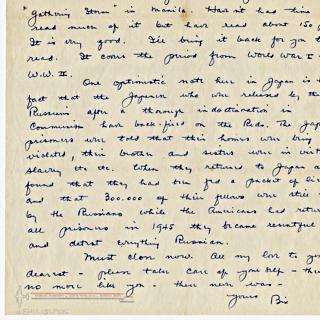 "Gathering Storm" in Manila. Haven't had time
read much of it but have read about 150 p
It is very good. I'll bring it back for you t
read. It covers the period from World War I -
W.W. II.
One optimistic note here in Japan is t
fact that the Japanese who were released by th
Russians after a thorough indoctrination in
Communism have back-fired on the Reds. The Jap
prisoners were told that their homes were being
violated, their brother and sisters were in virt
slavery etc etc. When they returned to Japan a
found that they had been fed a packet of lie
and that 300,000 of their fellows were still
by the Russians while the Americans had return
all prisoners in 1945 they became resentful
and detest everything Russian.
Must close now. All my love to you
dearest - please take care of yourself - there
no more like you - there never was -
Yours Bis